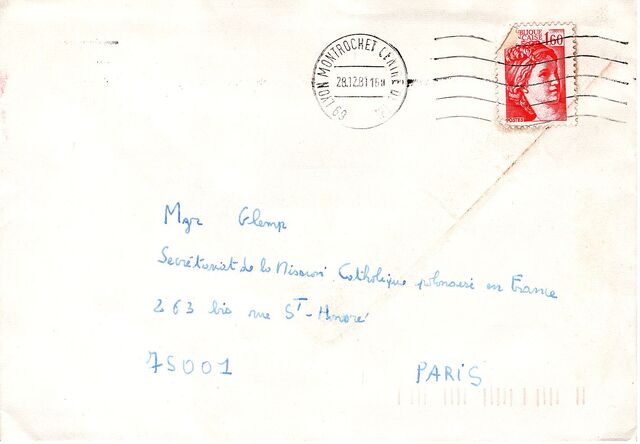 69 LYON MONTROCHET CENTRE
28.12.81 16H
BLIQUE
CAISE
1,60
Mgr Glemp
Secrétariat de la Mission Catholique polonaise en France
263 bis rue ST-Honoré
75001 PARIS